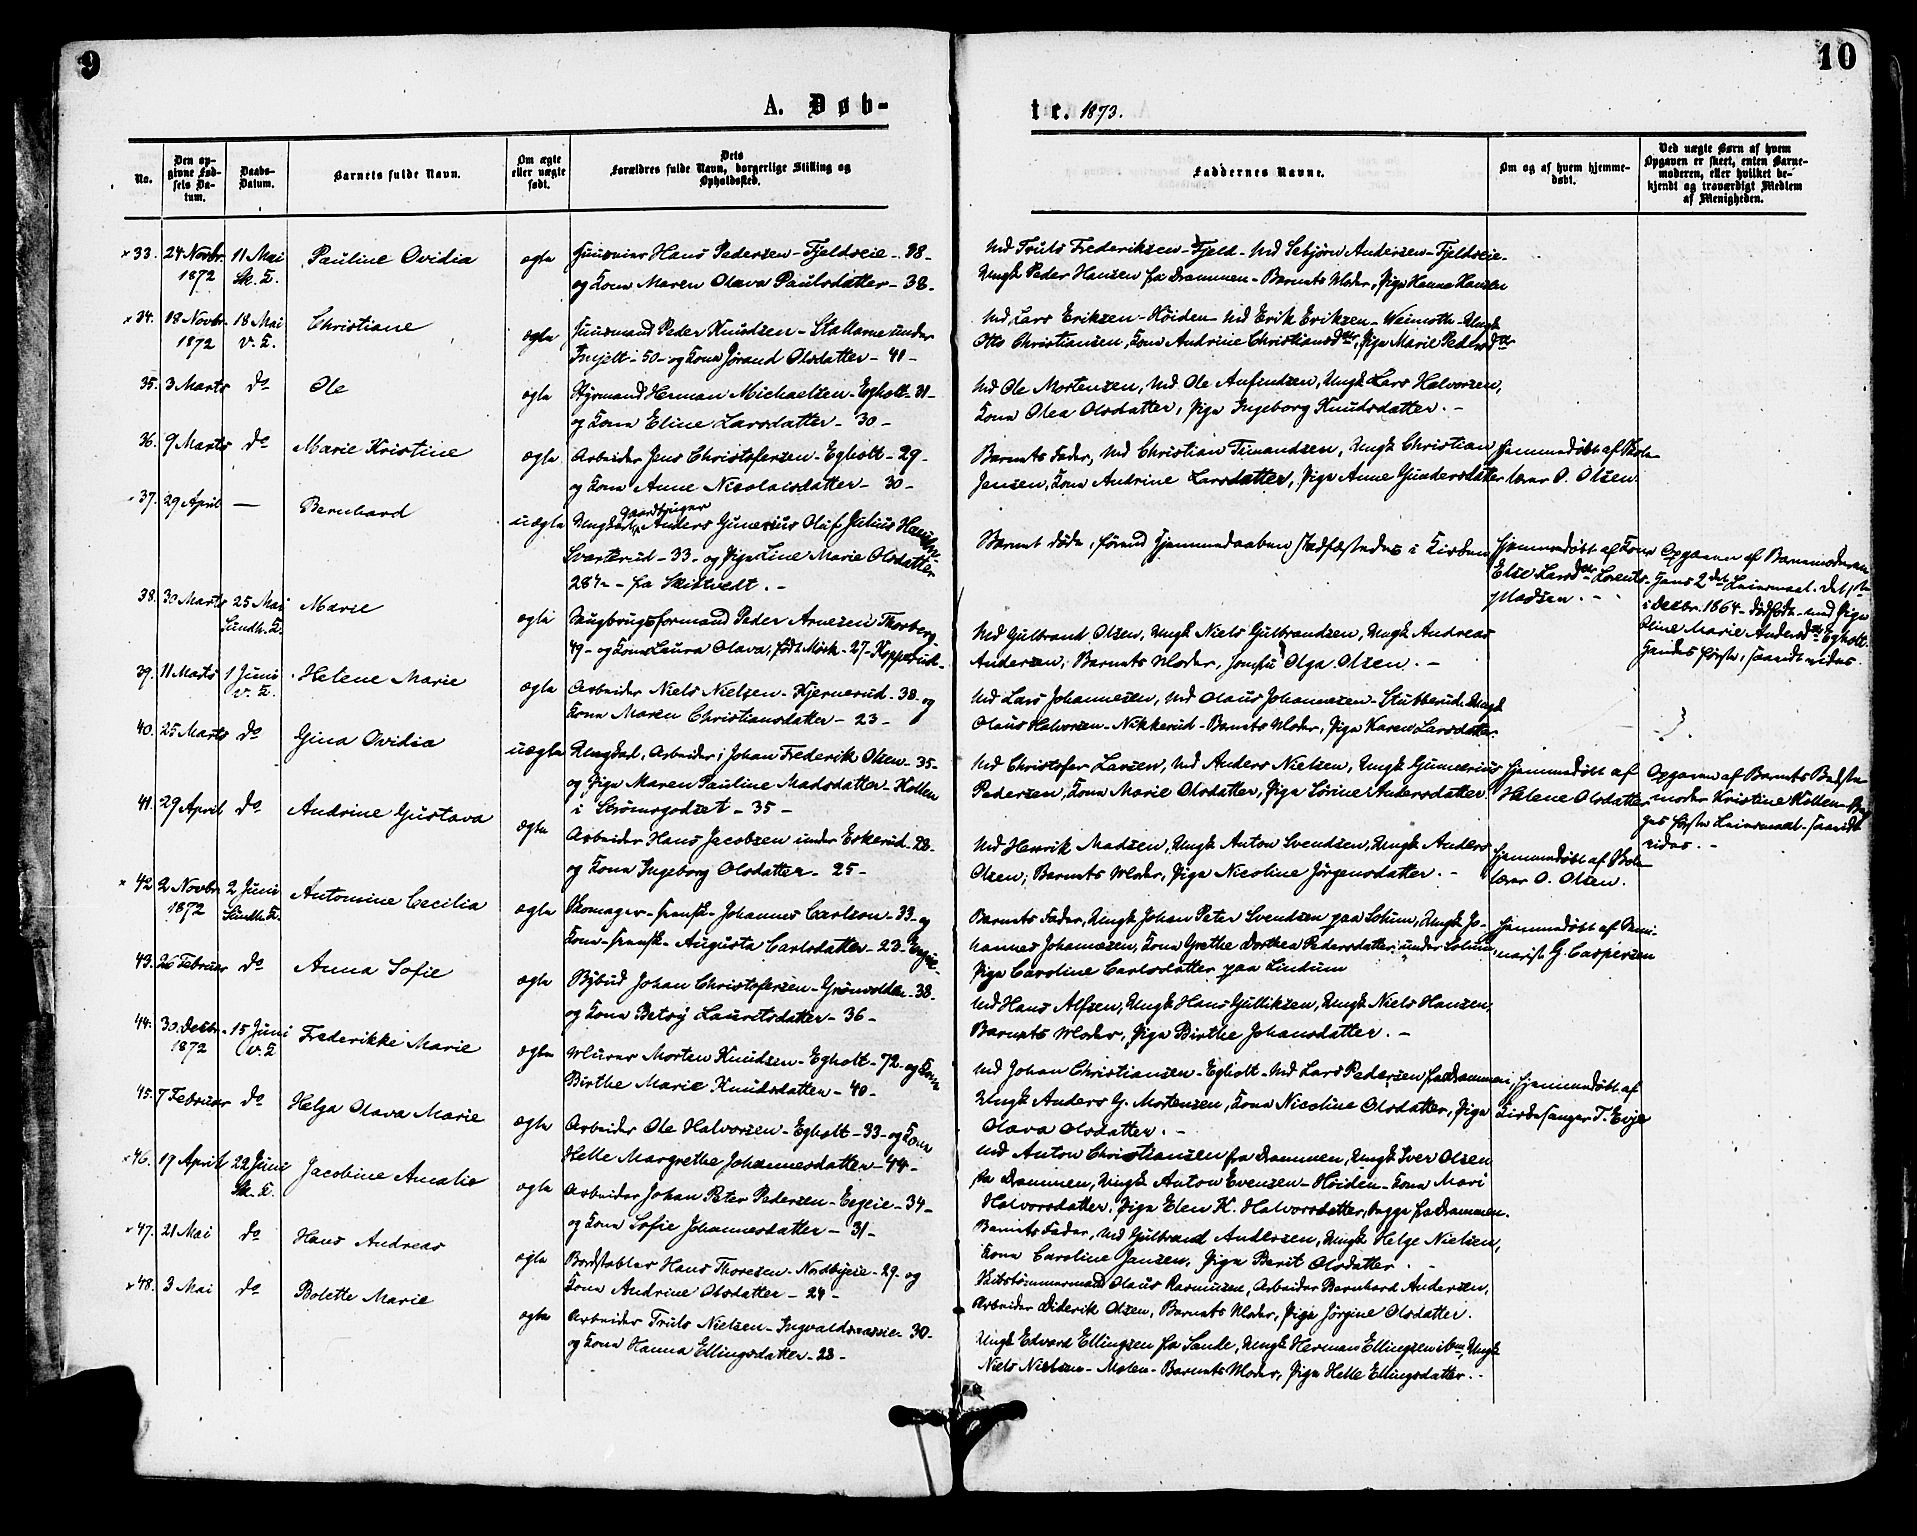 9
10
A. Døb-
te. 1873.
No.
Den op-
givne Fød-
sels Da-
tum.
Daabs-
Datum.
Barnets fulde Navn.
Om ægte
eller uægte
født.
Dets
Forældres fulde Navn, borgerlige Stilling og
Opholdssted.
Faddernes Navne.
Om og af hvem hjemme-
døbt.
Ved uægte Børn af hvem
Opgaven er skeet, enten Barne-
moderen, eller hvilket be-
kjendt og troværdigt Medlem
af Menigheden.
33. 24 Novbr. 11 Mai Pauline Ovidia ægte Huusmier Hans Pedersen - Fjeldseie - 38 -
1872 Sk. K. og Kone Maren Olava Paulsdatter - 38 -
Md Truls Frederiksen - Fjeld - Md Sebjørn Andersen - Fjeldseie -
Ungk Peder Hansen fra Drammen - Barnets Moder, Pige Hanna Hansen
34. 18 Novbr. 18 Mai Christiane ægte Huusmand Peder Knudsen - Stallerne under
1872 v. K. - 50 - og Kone Jørand Olsdatter - 41 -
Md Lars Eriksen - Høiden - Md Erik Eriksen - Ungk
Otto Christiansen, Kone Andrine Christiansdtr, Pige Marie Pedersdtr
35. 3 Marts do Ole ægte Styrmand Herman Michaelsen - Egholt - 31 -
og Kone Eline Larsdatter - 30 -
Md Ole Mortensen, Md Ole Anfindsen, Ungk Lars Halvorsen,
Kone Olea Olsdatter, Pige Ingeborg Knudsdatter. -
36. 9 Marts do Marie Kristine ægte Arbeider Jens Christofersen - Egholt - 29 -
og Kone Anne Nicolaisdatter - 30 -
Barnets Fader, Md Christian Timandsen, Ungk Christian Hjemmedøbt af Skole-
Jensen, Kone Andrine Larsdatter, Pige Anne Gundersdatter lærer O. Olsen.
37. 29 April — Bernhard uægte Ungkarl, Gaardbruger Anders Gunerius Oluf Julius Hansen
Svarterud - 33 - og Pige Line Marie Olsdatter
28 - fra Skistvedt. -
Barnet døde, førend Hjemmedaaben stadfæstedes i Kirken
Hjemmedøbt af Kone
Else Larsdtr Lorents
Madsen. -
Opgaven af Barnemoderen.
Hans 2det Leiermaal. Det 1ste
i Decbr. 1864 - dødfødt - med Pige
Oline Marie Andersdtr Egholt.
Hendes første, saavidt vides.
38. 30 Marts 25 Mai Marie ægte Saugbrugsformand Peder Arnesen Thorberg
Sundh. K. 49 - og Kone Laura Olava, født Mørk - 27 - Kopperud -
Md Gulbrand Olsen, Ungk Niels Gulbrandsen, Ungk Andreas
Andersen, Barnets Moder, Jomfru Olga Olsen. -
39. 11 Marts 1 Juni Helene Marie ægte Arbeider Niels Nielsen - Kjernerud - 38 - og
v. K. Kone Maren Christiansdatter - 23 -
Md Lars Johannesen, Md Olaus Johannesen - Stubberud, Ungk
Olaus Halvorsen - Nikkerud - Barnets Moder, Pige Karen Larsdatter
40. 25 Marts do Gina Ovidia uægte Ungkarl, Arbeider, Johan Frederik Olsen - 35 -
og Pige Maren Pauline Madsdatter - Kollen
i Strømsgodset - 35 -
Md Christofer Larsen, Md Anders Nielsen, Ungk Gunerius
Pedersen, Kone Marie Olsdatter, Pige Lorine Andersdatter.
Hjemmedøbt af
Helene Olsdatter
Opgaven af Barnets Bedste
moder Kristine Kollen - Be
ges første Leiermaal - saavidt
vides. -
41. 29 April do Andrine Gustava ægte Arbeider Hans Jacobsen under Eskerud - 28 -
og Kone Ingeborg Olsdatter - 25 -
Md Henrik Madsen, Ungk Anton Svendsen, Ungk Anders
Olsen, Barnets Moder, Pige Nicoline Jørgensdatter. -
Hjemmedøbt af Skole-
lærer O. Olsen.
42. 2 Novbr. 2 Juni Antomine Cecilia ægte Skomager - svensk - Johannes Carlson - 33 - og
1872 Sundh. K. Kone - svensk - Augusta Carlsdatter - 23 -
Barnets Fader, Ungk Johan Peter Svendsen paa Solum, Ungk Jo-
hannes Johannesen, Kone Grethe Dorthea Pedersdatter, under Solum,
Pige Caroline Carlsdatter paa Lindum
Hjemmedøbt af Semi-
narist G. Caspersen
43. 26 Februar do Anna Sofie ægte Bybud Johan Christofersen - Grønvolden - 38 -
og Kone Betsy Lauritsdatter - 36 -
Md Hans Alfsen, Ungk Hans Gulliksen, Ungk Niels Hansen,
Barnets Moder, Pige Birthe Johansdatter. -
44. 30 Decbr. 15 Juni Frederikke Marie ægte Murer Morten Knudsen - Egholt - 72 - og Kone
1872 v. K. Birthe Marie Knudsdatter - 40 -
Md Johan Christiansen - Egholt - Md Lars Pedersen fra Drammen, Hjemmedøbt af
Ungk Anders G. Mortensen, Kone Nicoline Olsdatter, Pige Kirkesanger T. Evje
Olava Olsdatter. -
45. 7 Februar do Helga Olava Marie ægte Arbeider Ole Halvorsen - Egholt - 33 - og Kone
Helle Margrethe Johannesdatter - 44 -
Md Anton Christiansen fra Drammen, Ungk Iver Olsen
fra Drammen, Ungk Anton Evensen - Høiden - Kone Mari
Halvorsdatter, Pige Elen K. Halvorsdatter, begge fra Drammen.
46. 19 April 22 Juni Jacobine Amalie ægte Arbeider Johan Peter Pedersen - Egeie - 34 -
Sk. K. og Kone Sofie Johannesdatter - 31 -
Barnets Fader, Md Gulbrand Andersen, Ungk Helge Nielsen,
Kone Caroline Jansen, Pige Berit Olsdatter.
47. 21 Mai do Hans Andreas ægte Bordstabler Hans Thoresen - Nordbyeie - 29 - og
Kone Andrine Olsdatter - 24 -
Skibstømmermand Olaus Rasmusen, Arbeider Bernhard Andersen,
Arbeider Diderik Olsen, Barnets Moder, Pige Jørgine Olsdatter.
48. 3 Mai do Bolette Marie ægte Arbeider Truls Nielsen - Ingvaldsaaseie - 30 -
og Kone Hanna Ellingsdatter - 28 -
Ungk Edvard Ellingsen fra Sande, Ungk Herman Ellingsen ibm, Ungk
Niels Nielsen - Molen - Barnets Moder, Pige Helle Ellingsdatter. -